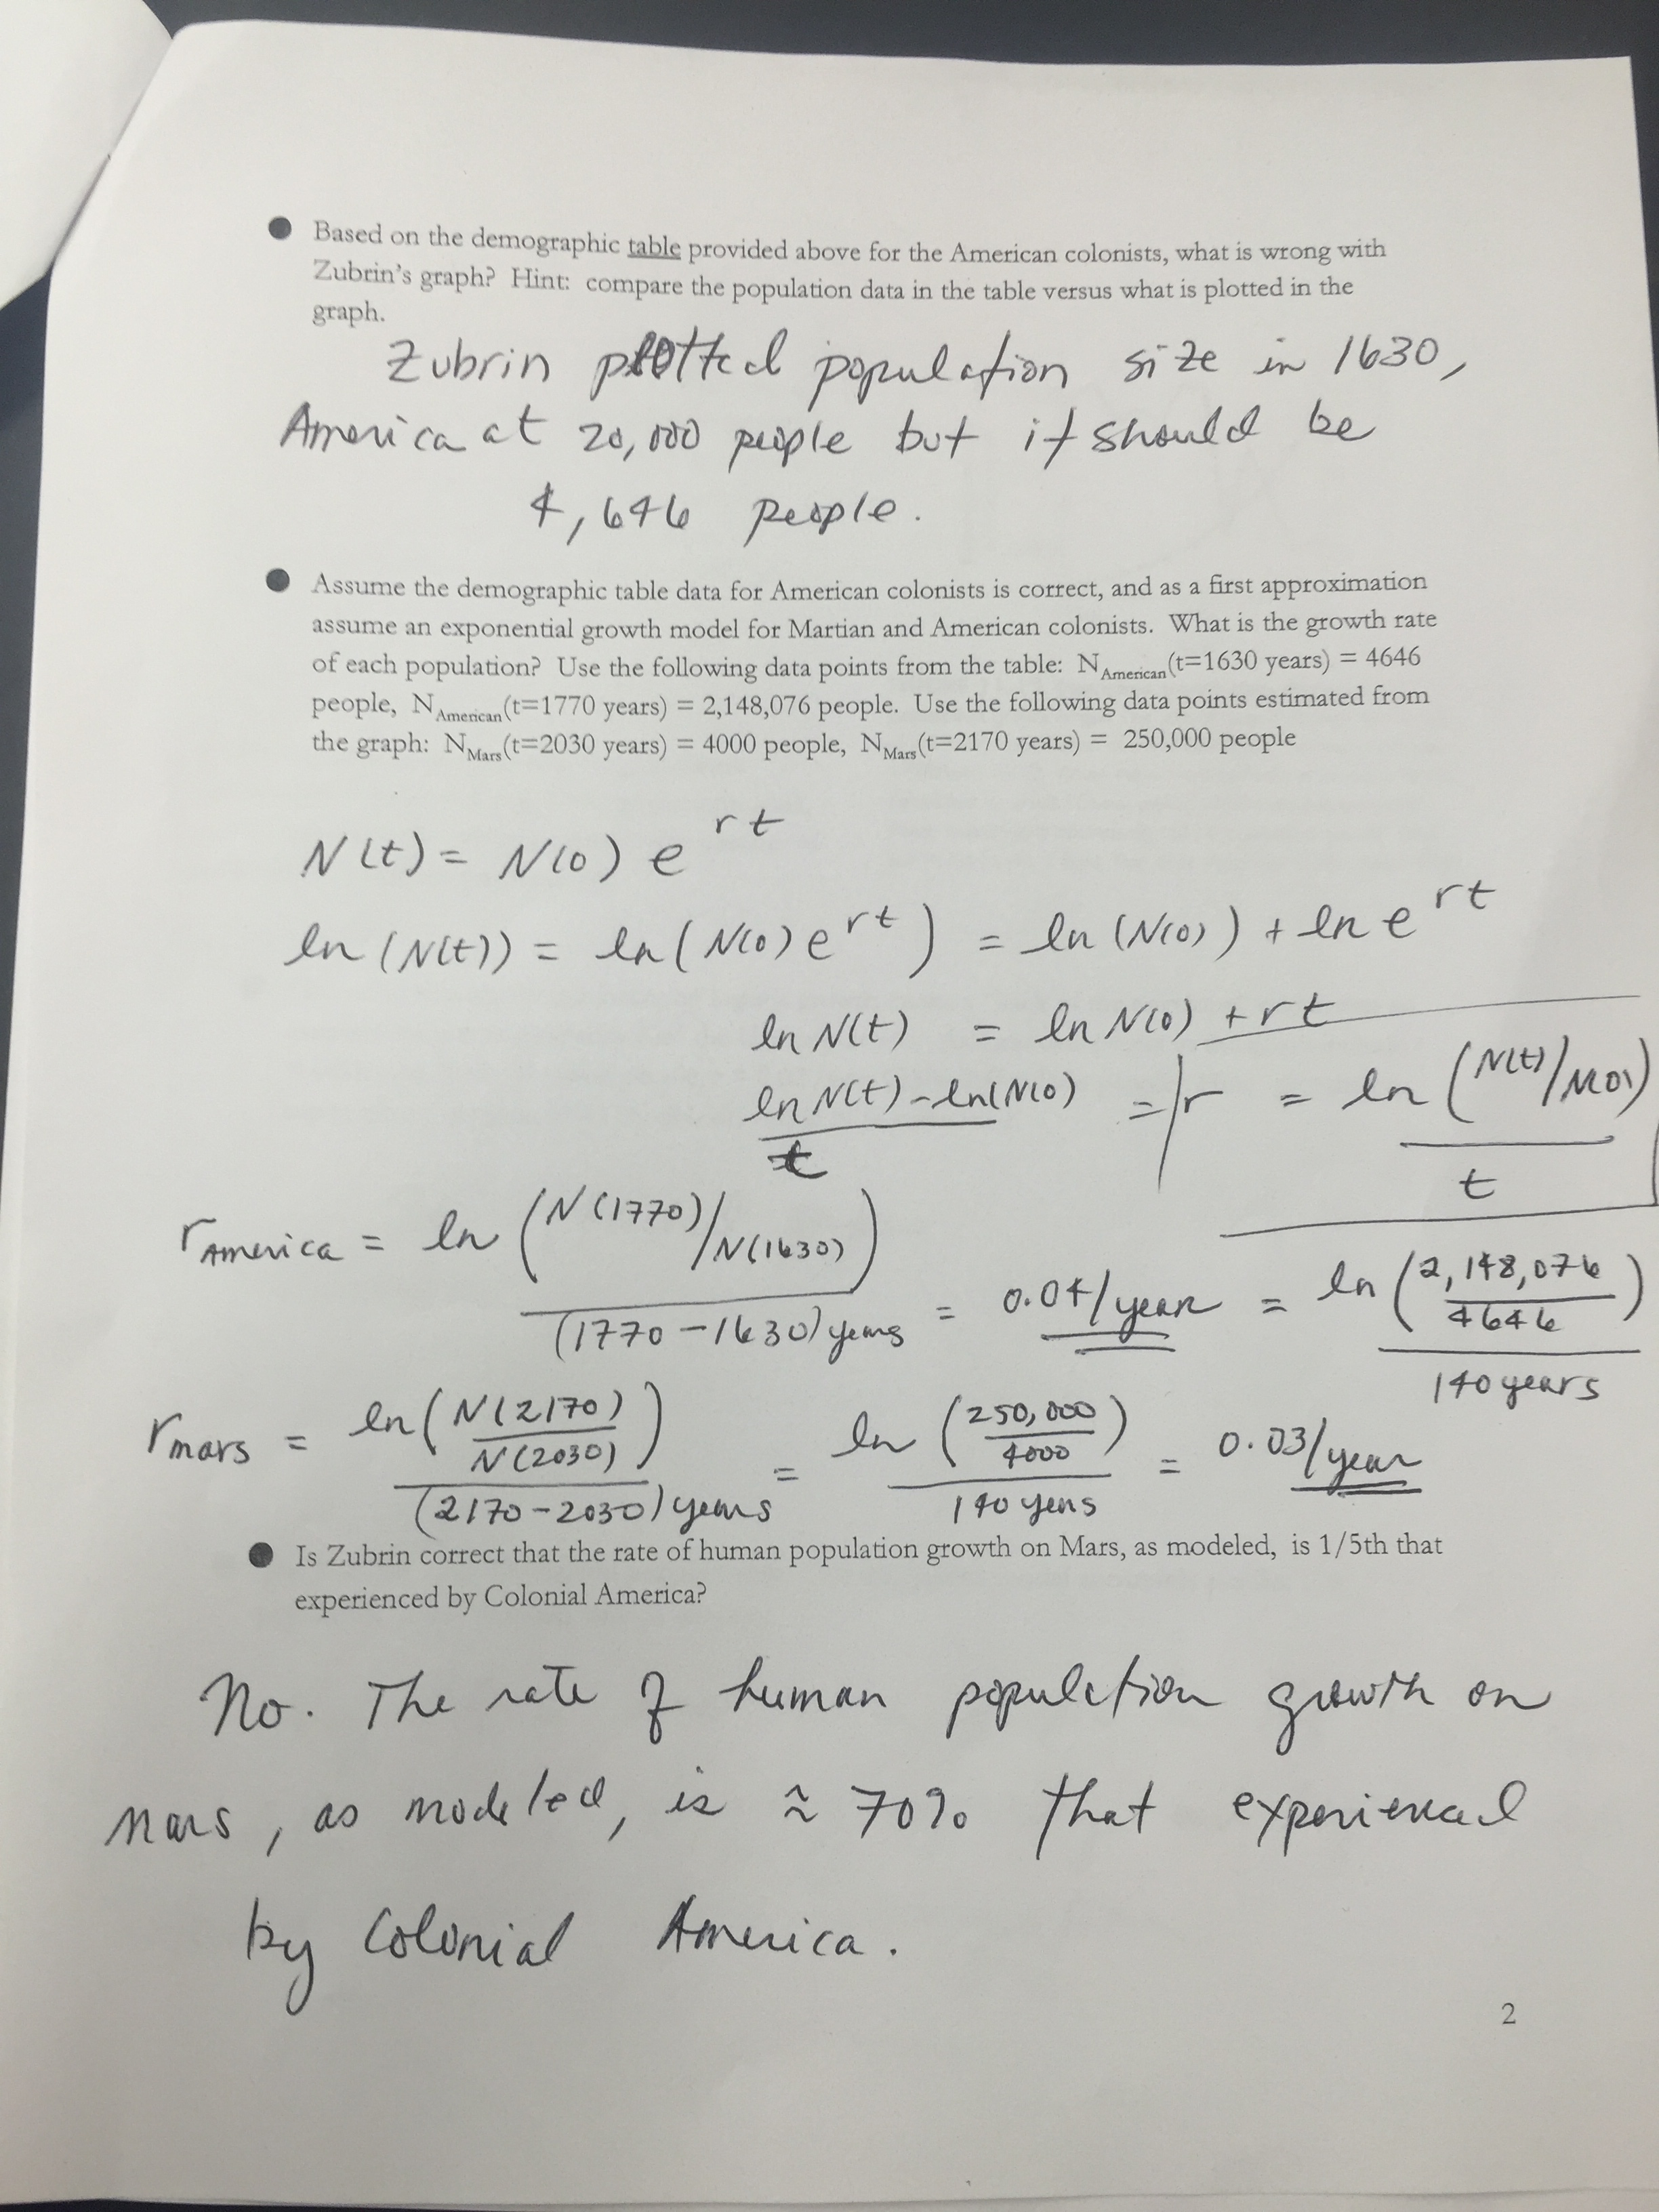 ● Based on the demographic table provided above for the American colonists, what is wrong with
Zubrin's graph? Hint: compare the population data in the table versus what is plotted in the
graph.
Zubrin plotted population size in 1630,
America at 20,000 people but it should be
4,646 people.
● Assume the demographic table data for American colonists is correct, and as a first approximation
assume an exponential growth model for Martian and American colonists. What is the growth rate
of each population? Use the following data points from the table: N_American(t=1630 years) = 4646
people, N_American(t=1770 years) = 2,148,076 people. Use the following data points estimated from
the graph: N_Mars(t=2030 years) = 4000 people, N_Mars(t=2170 years) = 250,000 people
N(t) = N(0) e^rt
ln (N(t)) = ln (N(0) e^rt) = ln (N(0)) + ln e^rt
ln N(t) = ln N(0) + rt
(ln N(t) - ln(N(0))/t = r = ln (N(t)/N(0))/t
r_America = ln (N(1770)/N(1630))/(1770-1630) years = 0.04/year = ln (2,148,076/4646)/140 years
r_mars = ln (N(2170)/N(2030))/(2170-2030) years = ln (250,000/4000)/140 years = 0.03/year
● Is Zubrin correct that the rate of human population growth on Mars, as modeled, is 1/5th that
experienced by Colonial America?
No. The rate of human population growth on
Mars, as modeled, is ≈ 70% that experienced
by Colonial America.
2